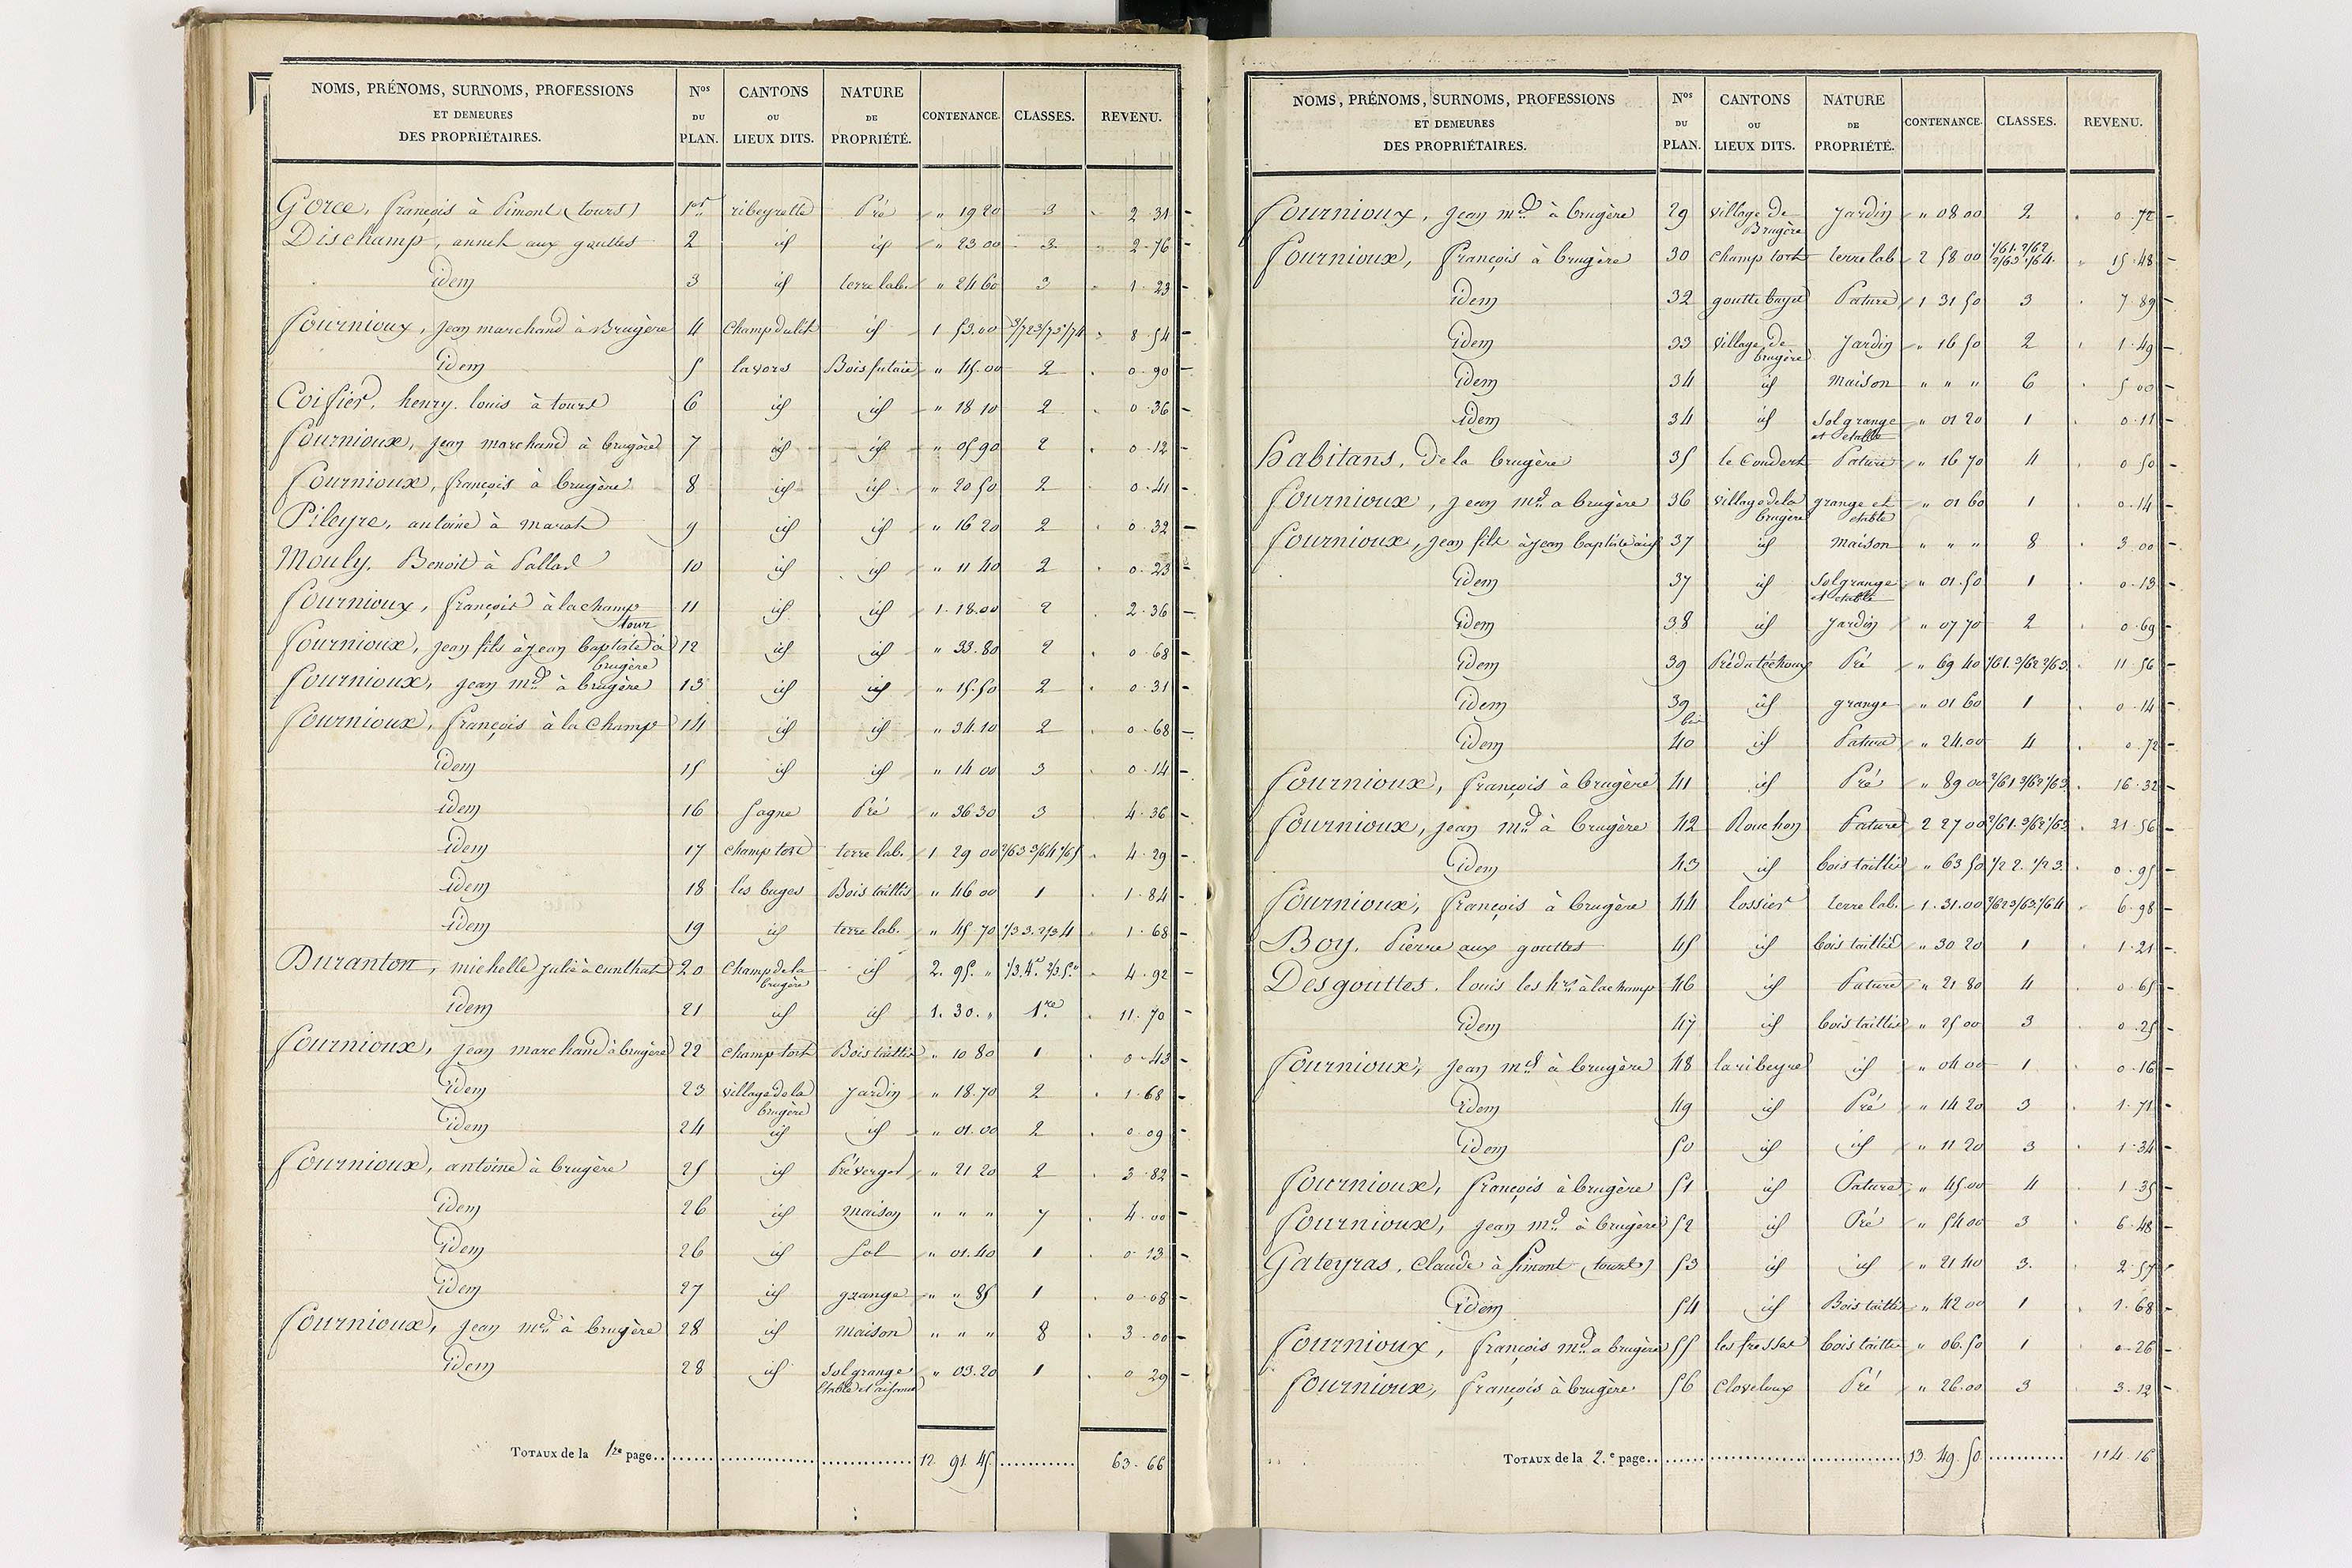 NOMS, PRÉNOMS, SURNOMS, PROFESSIONS ET DEMEURES DES PROPRIÉTAIRES. Nos DU PLAN. CANTONS OU LIEUX DITS. NATURE DE PROPRIÉTÉ. CONTENANCE. CLASSES. REVENU.
Gorce, françois à Pimont (tours) 1er ribeyrette Pré " 19 20 3 2.31
Dischamp, annet aux gouttes 2 id id " 23 00 3 2.76
idem 3 id terre lab. " 24 60 3 1.23
fournioux, jean marchand à Brugère 4 Champ dulit id 1 53.00 3/72 3/73 1/74 8.54
idem 5 lavors Bois futaie " 45.00 2 0.90
Coifier, henry. louis à tours 6 id id " 18 10 2 0.36
fournioux, jean marchand à brugère 7 id id " 05 90 2 0.12
fournioux, françois à brugère 8 id id " 20 50 2 0.41
Pileyre, antoine à marat 9 id id " 16 20 2 0.32
Mouly, Benoit à Pallad 10 id id " 11 40 2 0.23
fournioux, françois à lachamp tour 11 id id 1.18.00 2 2.36
fournioux, jean fils à jean baptiste à brugère 12 id id " 33.80 2 0.68
fournioux, jean md à brugère 13 id id " 15.50 2 0.31
fournioux, françois à la Champ 14 id id " 34.10 2 0.68
idem 15 id id " 14 00 3 0.14
idem 16 Sagne Pré " 36 30 3 4.36
idem 17 champ tort terre lab. 1 29 00 2/63 3/64 1/65 4.29
idem 18 les buges Bois taillis " 46 00 1 1.84
idem 19 id terre lab. " 45 70 1/3 3. 2/3 4 1.68
Duranton, michelle julie à cunlhat 20 Champ de la brugère id 2. 95. " 1/3.4e 2/3.5e 4.92
idem 21 id id 1. 30. " 1re 11.70
fournioux, jean marchand à brugère 22 champ tort Bois taillis " 10 80 1 0.43
idem 23 village de la brugère jardin " 18.70 2 1.68
idem 24 id id " 01.00 2 0.09
fournioux, antoine à brugère 25 id Pré verger " 21 20 2 3.82
idem 26 id maison " " " 7 4.00
idem 26 id sol " 01.40 1 0.13
idem 27 id grange " " 85 1 0.08
fournioux, jean md à brugère 28 id maison " " " 8 3.00
idem 28 id sol grange étable et aisance " 03.20 1 0 29
TOTAUX de la 1re page 12. 91 45 63.66
NOMS, PRÉNOMS, SURNOMS, PROFESSIONS ET DEMEURES DES PROPRIÉTAIRES. Nos DU PLAN. CANTONS OU LIEUX DITS. NATURE DE PROPRIÉTÉ. CONTENANCE. CLASSES. REVENU.
fournioux, jean md à brugère 29 village de Brugère jardin " 08 00 2 0.72
fournioux, françois à brugère 30 champ tort terre lab 2 58 00 1/61. 2/62 2/63 1/64. 15.48
idem 32 goutte bayet Pature 1 31 50 3 7.89
idem 33 village de brugère jardin " 16 50 2 1.49
idem 34 id maison " " " 6 5 00
idem 34 id Sol grange et etable " 01 20 1 0.11
habitans, de la brugère 35 le Coudert Pature " 16 70 4 0 50
fournioux, jean md a brugère 36 village de la brugère grange et etable " 01 60 1 0.14
fournioux, jean fils à jean baptiste aud 37 id maison " " " 8 3.00
idem 37 id Sol grange et etable " 01.50 1 0.13
idem 38 id jardin " 07 70 2 0.69
idem 39 Pré Pré " 69 40 1/61. 3/62 2/63. 11 56
idem 39 bis id grange " 01 60 1 0.14
idem 40 id Pature " 24.00 4 0.72
fournioux, françois à brugère 41 id Pré " 89 00 2/61 3/62 1/63 16.32
fournioux, jean md à brugère 42 Rouchon Pature 2 27 00 2/61. 3/62 1/63 21.56
idem 43 id bois taillis " 63 50 1/2 2. 1/2 3. 0.95
fournioux, françois à brugère 44 lossier terre lab. 1.31.00 2/62 3/63. 1/64 6.98
Boy, Pierre aux gouttes 45 id bois taillis " 30 20 1 1.21
Desgouttes. louis les hrs à lachamp 46 id Pature " 21 80 4 0.65
idem 47 id bois taillis " 25 00 3 0.25
fournioux, jean md à brugère 48 la ribeyre id " 04 00 1 0.16
idem 49 id Pré " 14 20 3 1.71
idem 50 id id " 11 20 3 1.34
fournioux, françois à brugère 51 id Pature " 45.00 4 1 35
fournioux, jean md à brugère 52 id Pré " 54 00 3 6.48
Gateyras, Claude à Pimont (tours) 53 id id " 21 40 3. 2.57
idem 54 id Bois taillis " 42 00 1 1.68
fournioux, françois md a brugère 55 les bois taillis " 06.50 1 0.26
fournioux, françois à brugère 56 cloveloux Pré " 26.00 3 3.12
TOTAUX de la 2.e page 13 49. 50 114 16